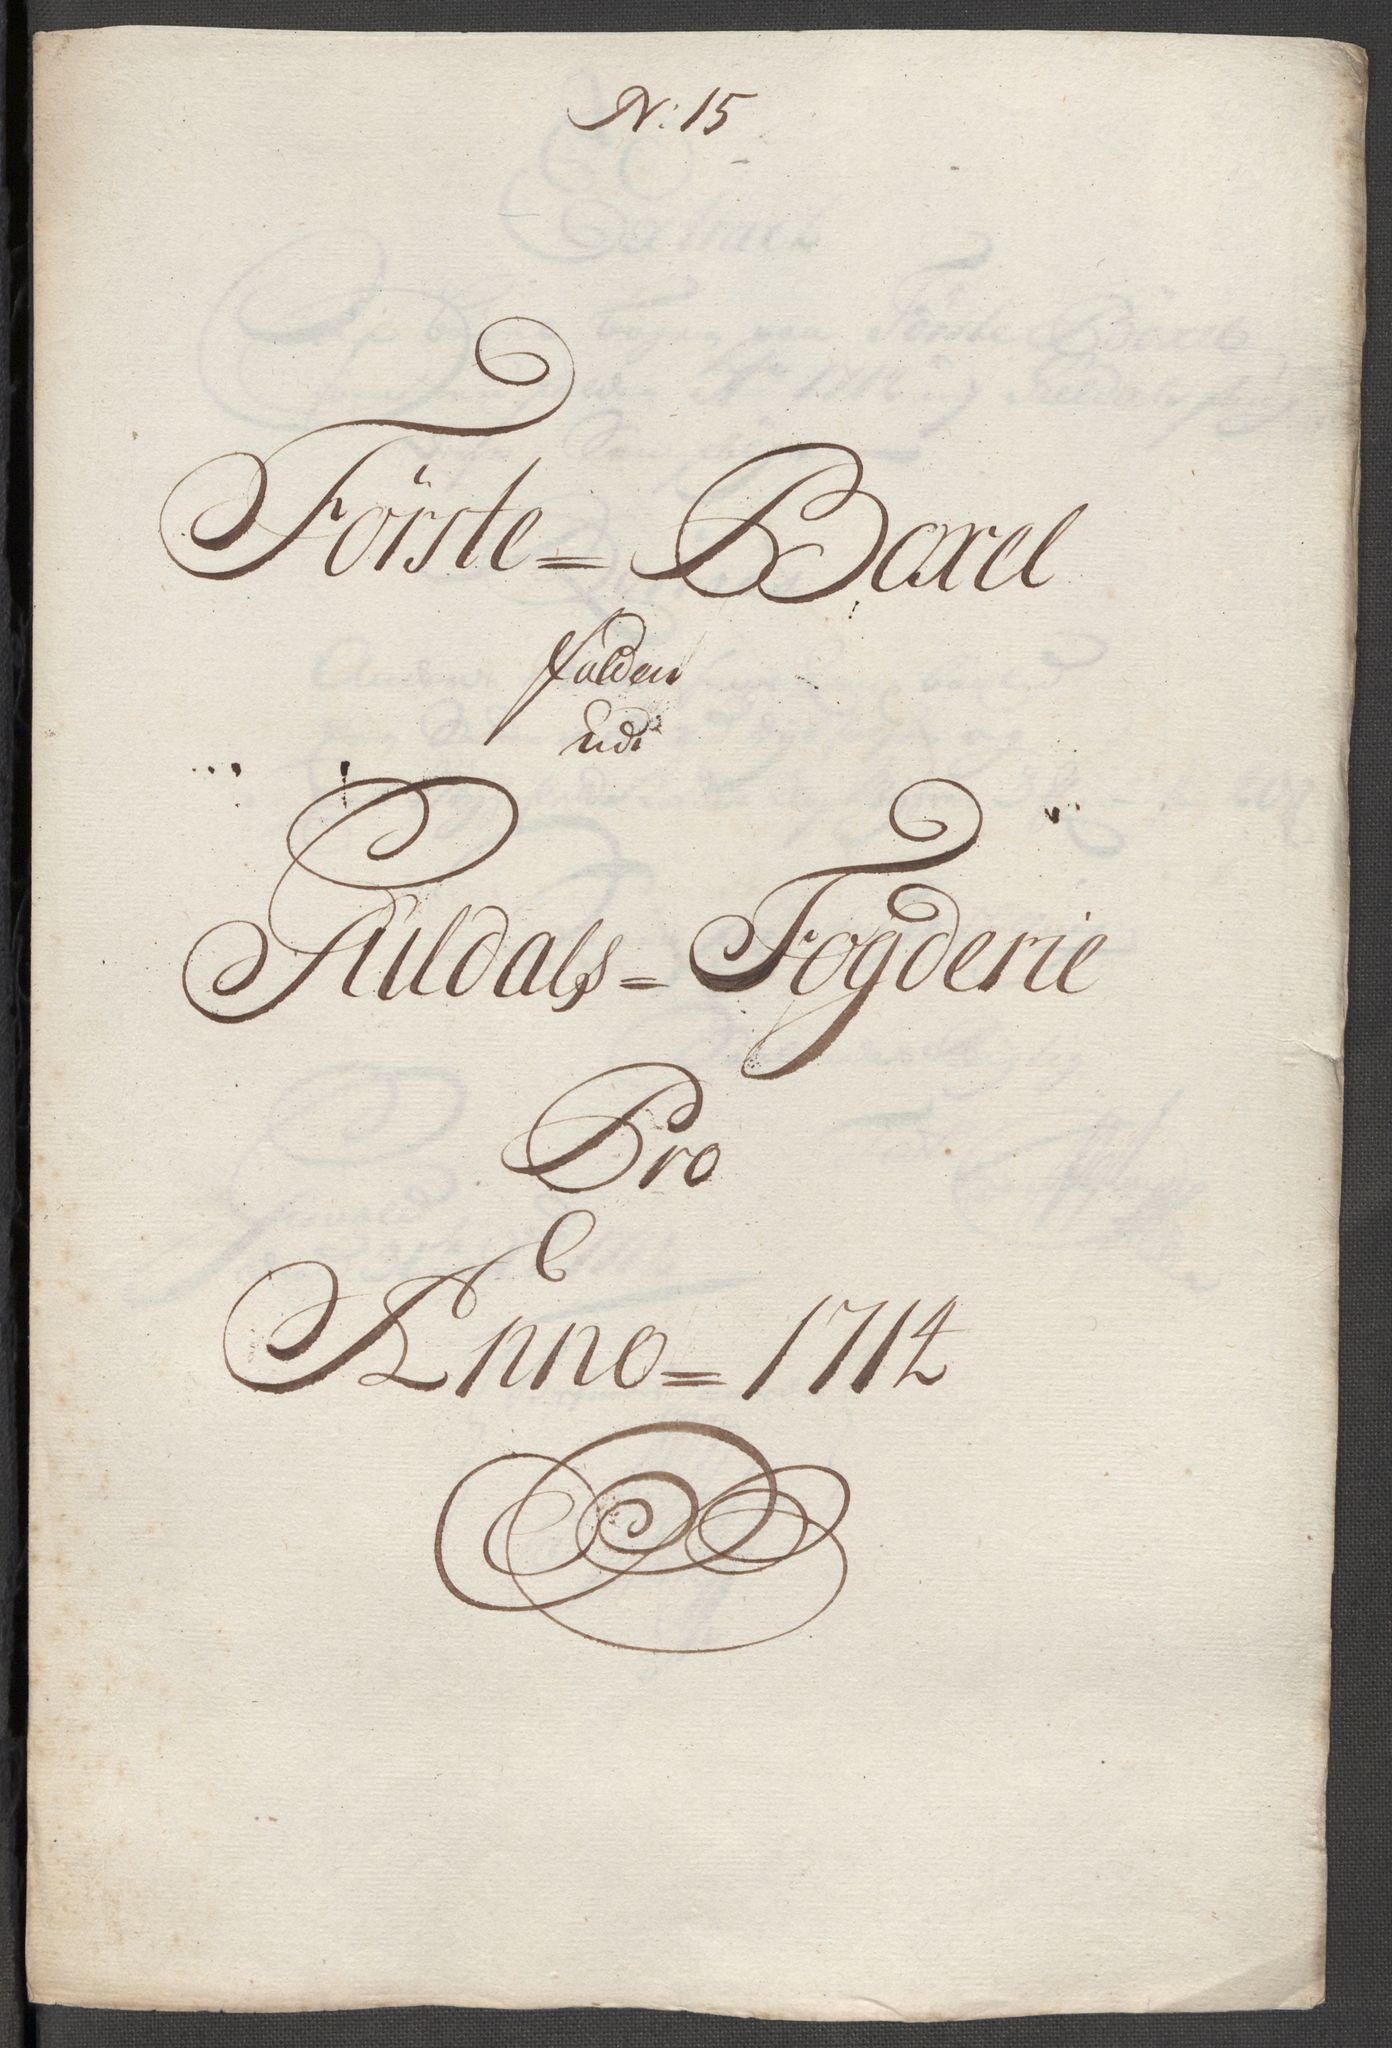 N: 15
Förste= Boxel
falden
udi
Guldals= Fogderie
Pro
Anno= 1714